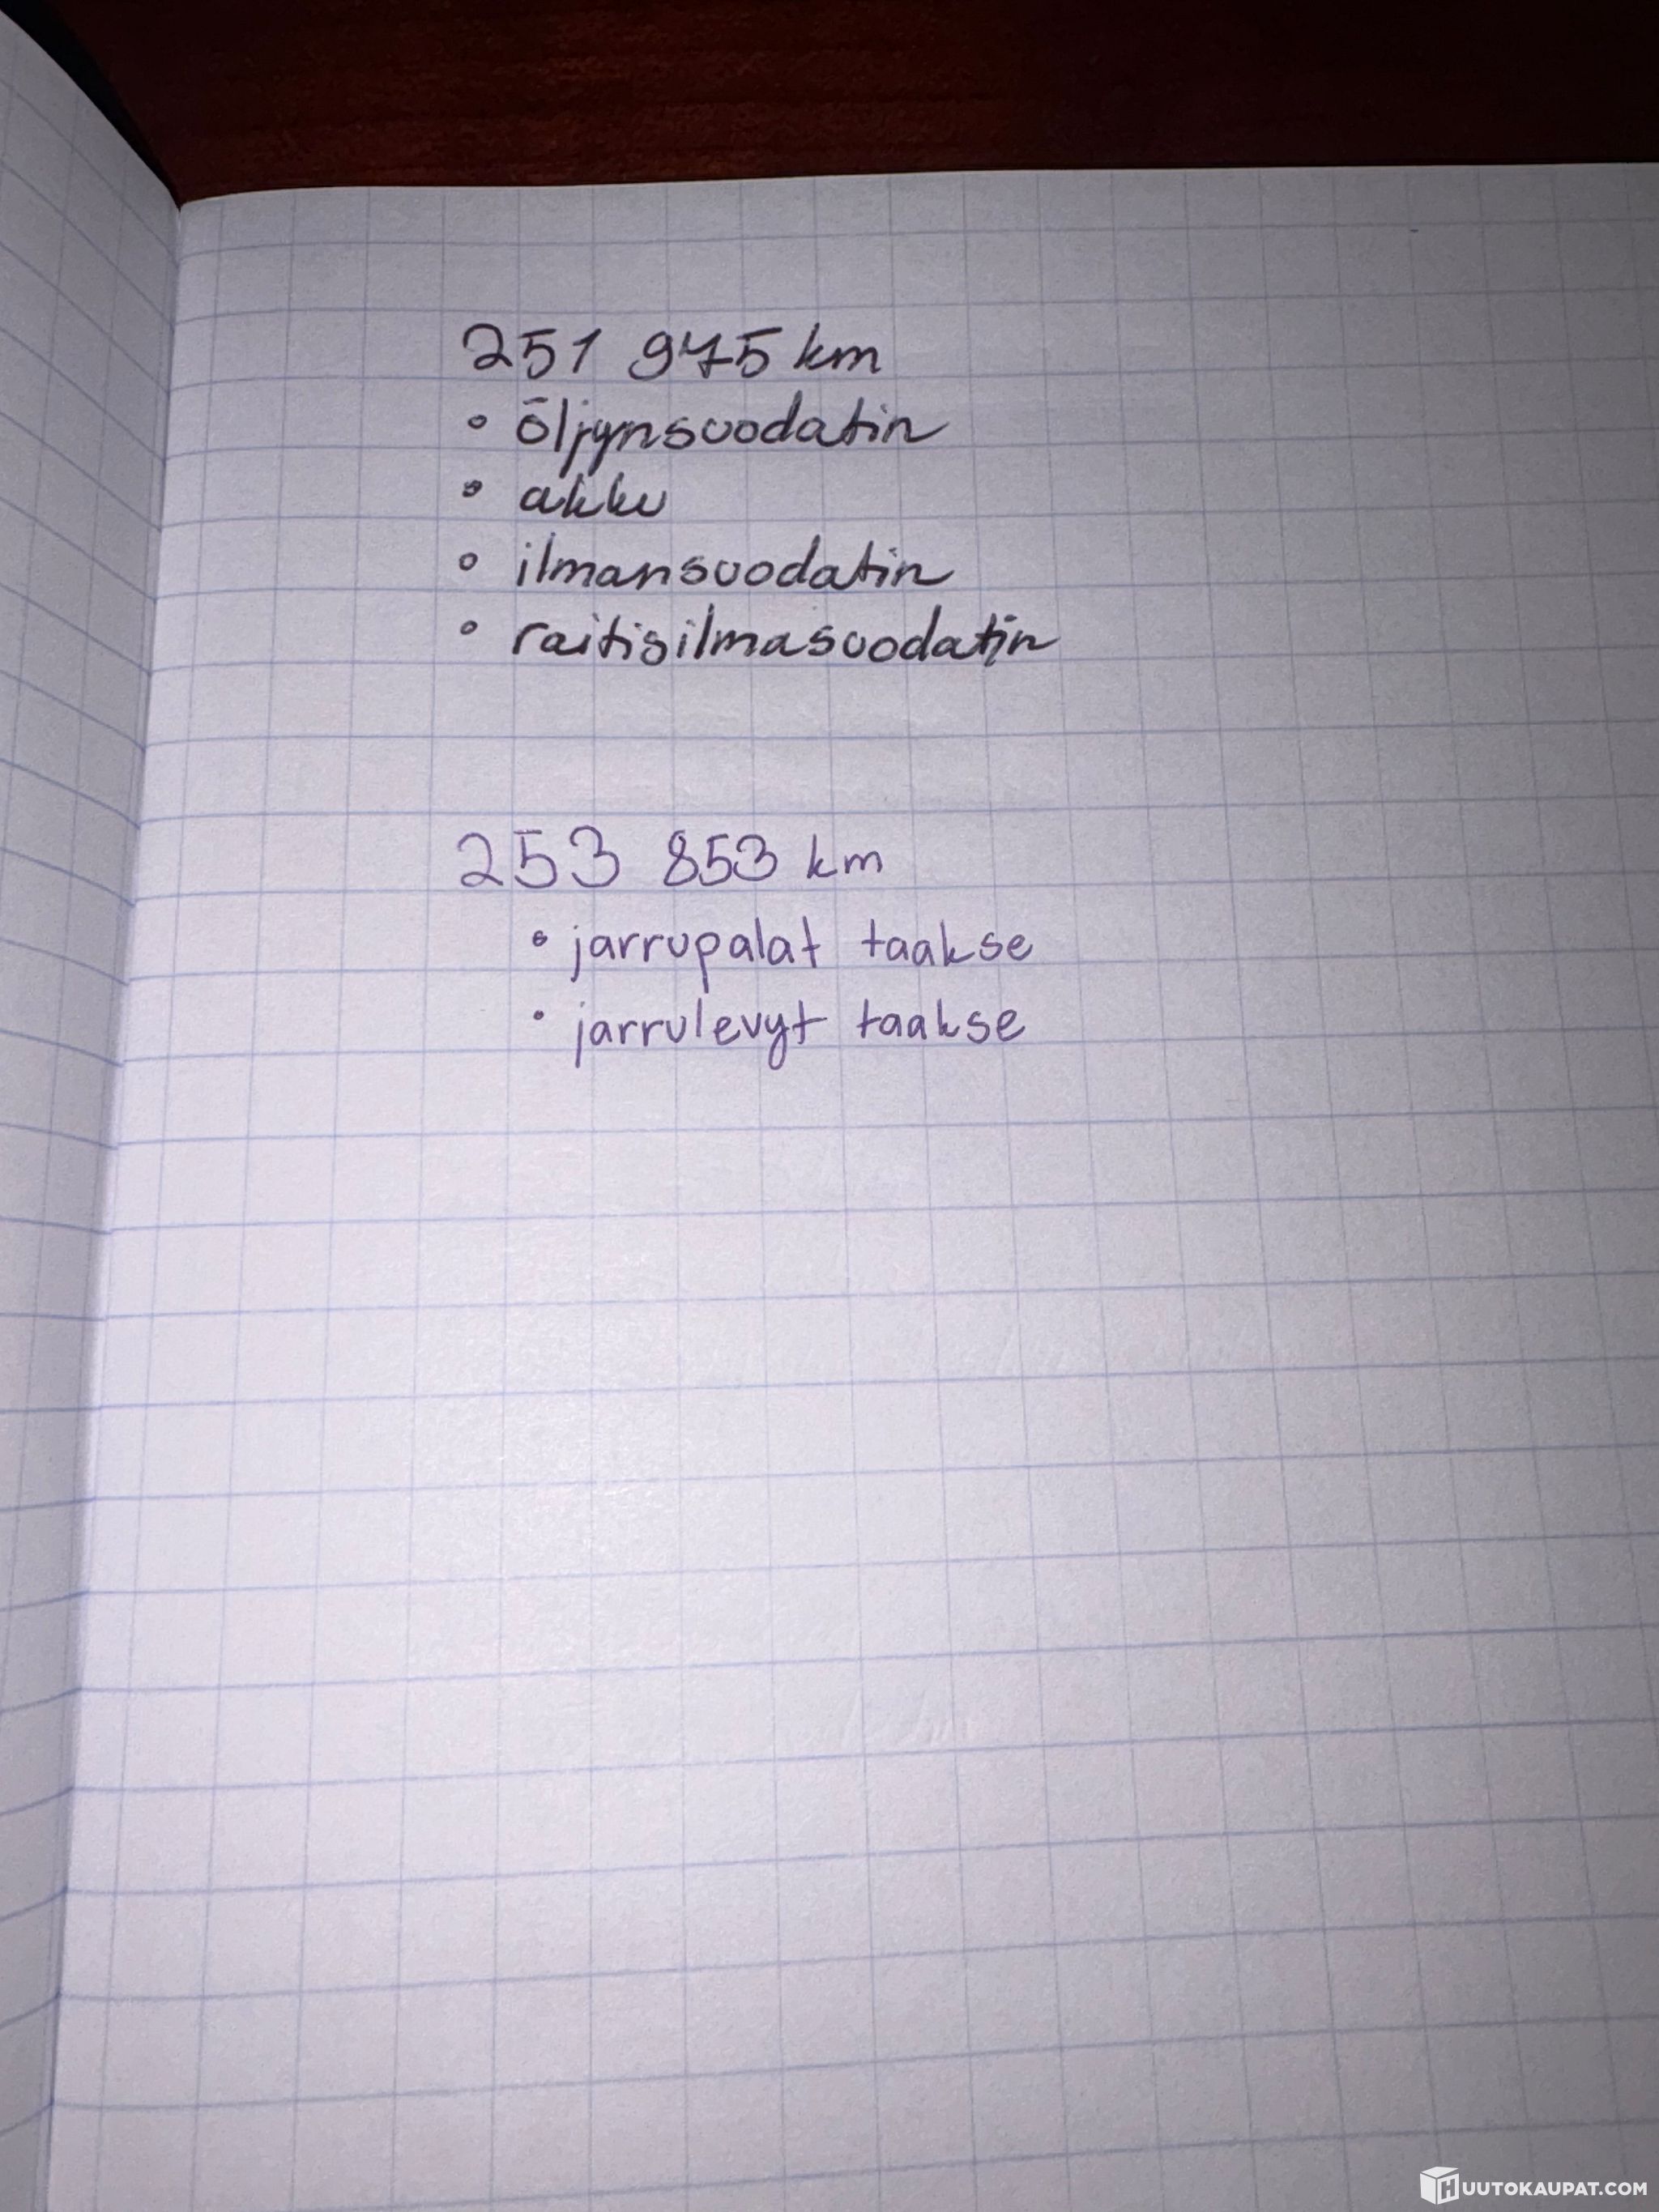 251 975 km
• öljynsuodatin
• akku
• ilmansuodatin
• raitisilmasuodatin
253 853 km
• jarrupalat taakse
• jarrulevyt taakse
HUUTOKAUPAT.COM